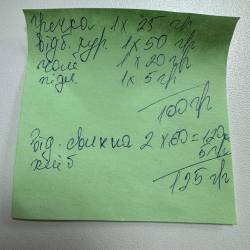 гречка 1 x 25 гр
відб. кур. 1 x 50 гр
1 x 20 гр
1 x 5 гр
100 гр
Від. свинина 2 x 60 = 120
хліб 5 гр
125 гр